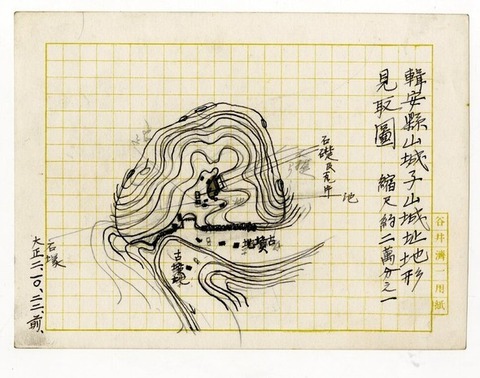 輯安縣山城子山城址地形
見取圖 縮尺約二萬分之一
谷井濟一用紙
石礎瓦片
池
古墳地
古墳
石塚
大正二、一〇、二二、前、